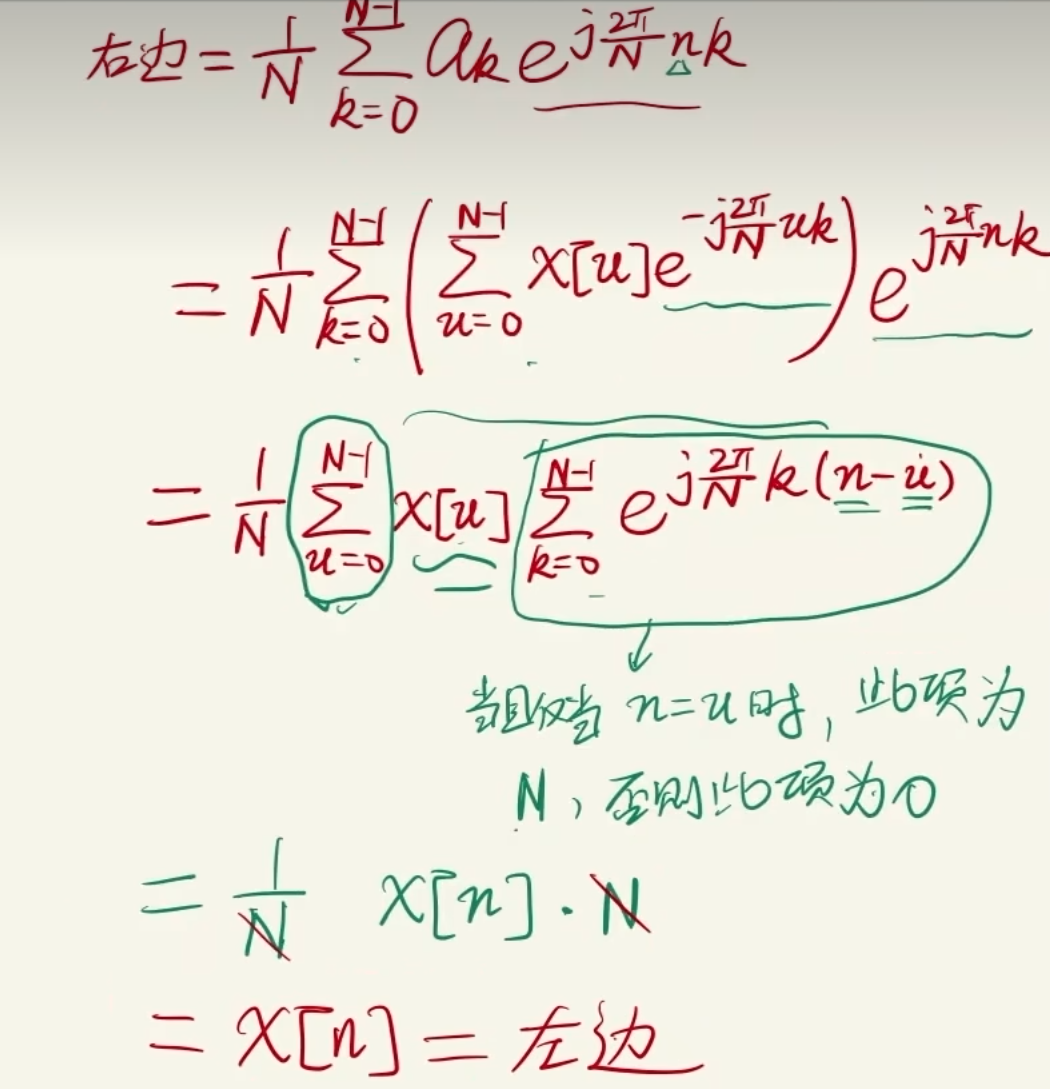 右边 = 1/N ∑_{k=0}^{N-1} a_k e^{j 2π/N nk}
= 1/N ∑_{k=0}^{N-1} ( ∑_{u=0}^{N-1} x[u] e^{-j 2π/N uk} ) e^{j 2π/N nk}
= 1/N ∑_{u=0}^{N-1} x[u] ∑_{k=0}^{N-1} e^{j 2π/N k(n-u)}
当且仅当 n=u时, 此项为
N, 否则此项为0
= 1/N x[n]·N
= x[n] = 左边